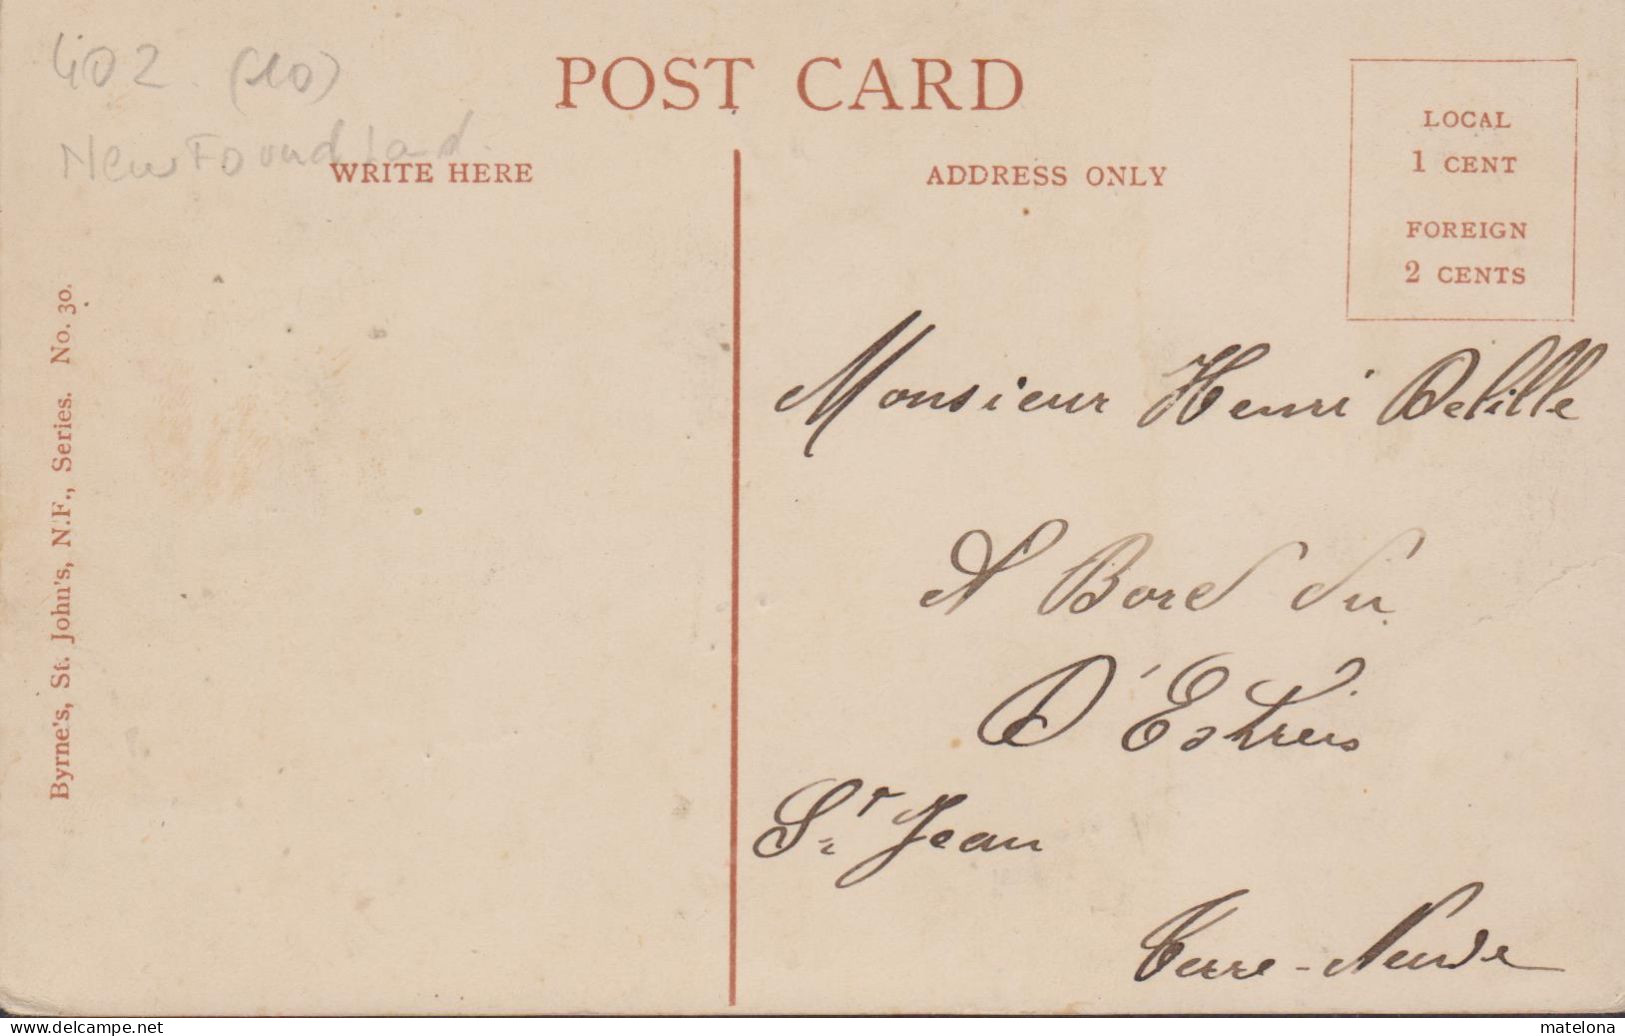 402 (10)
NewFoundland.
POST CARD
WRITE HERE
ADDRESS ONLY
LOCAL
1 CENT
FOREIGN
2 CENTS
Byrne's, St. John's, N.F., Series. No. 30.
Monsieur Henri Delille
A Bord du
D'Estreis
St Jean
Terre-Neuve
matelona